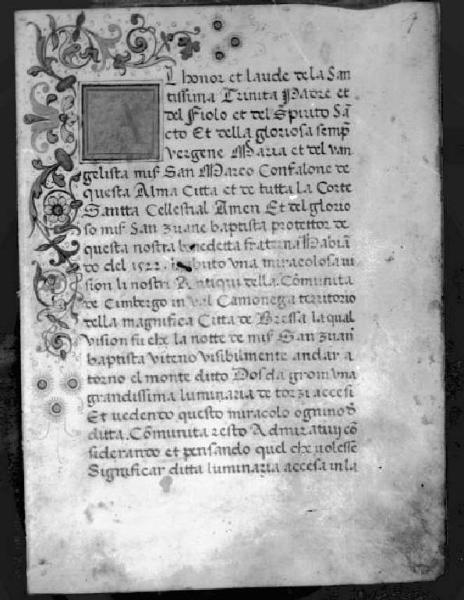 A L honor et laude de la San
tissima Trinita Padre et
del Fiolo et del Spirito Sā
cto Et della gloriosa semp
vergene Maria et del van
gelista miſ San Marco Confalone de
questa Alma Citta et de tutta la Corte
Santta Cellestial Amen Et del glorio
so miſ San Zuane baptista protettor de
questa nostra benedetta fraterna Habiā
do del 1522 vna miracolosa vi
sion li nostri Antiqui della Cōmunita
de Cimbergo in val Camonega territorio
della magnifica Citta de Bressa la qual
vision fu che la notte de miſ San Zuan
baptista viteno visibilmente andar a
torno el monte ditto Dosda grom vna
grandissima luminaria de torzi accesi
Et vedendo questo miracolo ognino d
ditta Cōmunita resto Admirativi cō
siderando et pensando quel che volesse
Significar ditta luminaria accesa in la